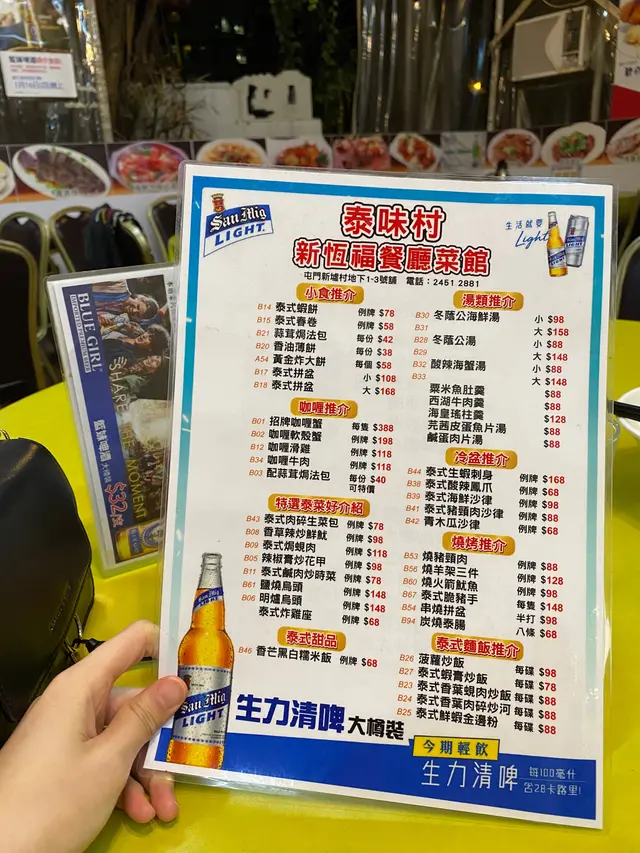 San Mig
LIGHT
泰味村
新恆福餐廳菜館
屯門新墟村地下1-3號舖 電話：2451 2881
生活就要
Light
小食推介
B14 泰式蝦餅 例牌 $78
B15 泰式春卷 例牌 $58
B21 蒜茸焗法包 每份 $42
B20 香油薄餅 每份 $38
A54 黃金炸大餅 每個 $58
B17 泰式拼盆 小 $108
B18 泰式拼盆 大 $168
咖喱推介
B01 招牌咖喱蟹 每隻 $388
B02 咖喱軟殼蟹 例牌 $198
B12 咖喱滑雞 例牌 $118
B34 咖喱牛肉 例牌 $118
B03 配蒜茸焗法包 每份 $40
可特價
特選泰菜好介紹
B43 泰式肉碎生菜包 例牌 $78
B08 香草辣炒鮮魷 例牌 $98
B09 泰式焗蜆肉 例牌 $118
B05 辣椒膏炒花甲 例牌 $98
B11 泰式鹹肉炒時菜 例牌 $78
B61 鹽燒烏頭 例牌 $148
B06 明爐烏頭 例牌 $148
泰式炸雞座 例牌 $68
泰式甜品
B46 香芒黑白糯米飯 例牌 $68
湯類推介
B30 冬蔭公海鮮湯 小 $98
B31 大 $158
B28 冬蔭公湯 小 $88
B29 大 $148
B32 酸辣海蟹湯 小 $88
B33 大 $148
粟米魚肚羹 $88
西湖牛肉羹 $88
海皇瑤柱羹 $128
芫茜皮蛋魚片湯 $88
鹹蛋肉片湯 $88
冷盆推介
B44 泰式生蝦刺身 例牌 $168
B38 泰式酸辣鳳爪 例牌 $68
B39 泰式海鮮沙律 例牌 $98
B41 泰式豬頸肉沙律 例牌 $88
B42 青木瓜沙律 例牌 $68
燒烤推介
B53 燒豬頸肉 例牌 $88
B56 燒羊架三件 例牌 $128
B60 燒火箭魷魚 例牌 $98
B67 泰式脆豬手 每隻 $148
B54 串燒拼盆 半打 $98
B94 炭燒泰腸 八條 $68
泰式麵飯推介
B26 菠蘿炒飯 每碟 $98
B27 泰式蝦膏炒飯 每碟 $78
B23 泰式香葉蜆肉炒飯 每碟 $88
B24 泰式香葉肉碎炒河 每碟 $88
B25 泰式鮮蝦金邊粉 每碟 $88
San Mig
LIGHT
生力清啤 大樽裝
今期輕飲
生力清啤 每100毫升
含28卡路里!
BLUE GIRL
SHARE
MOMENT
藍妹啤酒 大樽裝
$32